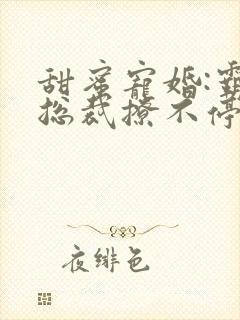 甜蜜寵婚:
总裁撩不停
夜绯色